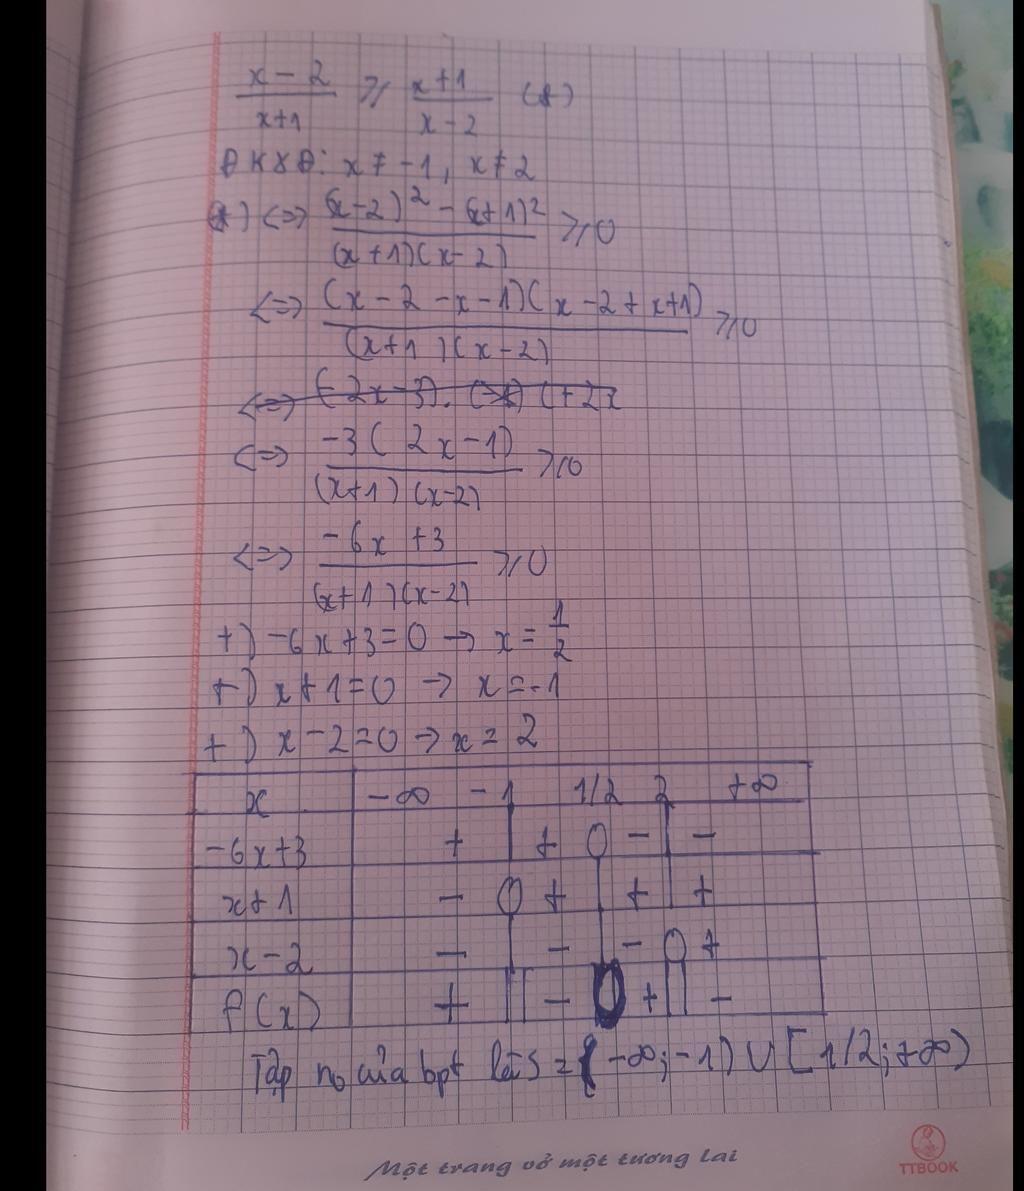 x - 2 / x+1 ⩾ x+1 / x-2 (*)
ĐKXĐ: x ≠ -1, x ≠ 2
(*) <=> (x-2)² - (x+1)² / (x+1)(x-2) ⩾ 0
<=> (x - 2 - x - 1)(x - 2 + x+1) / (x+1)(x-2) ⩾ 0
<=> -3(2x-1) / (x+1)(x-2) ⩾ 0
<=> -6x +3 / (x+1)(x-2) ⩾ 0
+) -6x+3=0 → x = 1/2
+) x+1=0 → x=-1
+) x-2=0 → x= 2
x -∞ -1 1/2 2 +∞
-6x+3 + | + 0 - | -
x+1 - 0 + | + | +
x-2 - | - | - 0 +
f(x) + || - 0 + || -
Tập no của bpt là S = (-∞;-1) ∪ [1/2;+∞)
Một trang vở một tương lai
TTBOOK